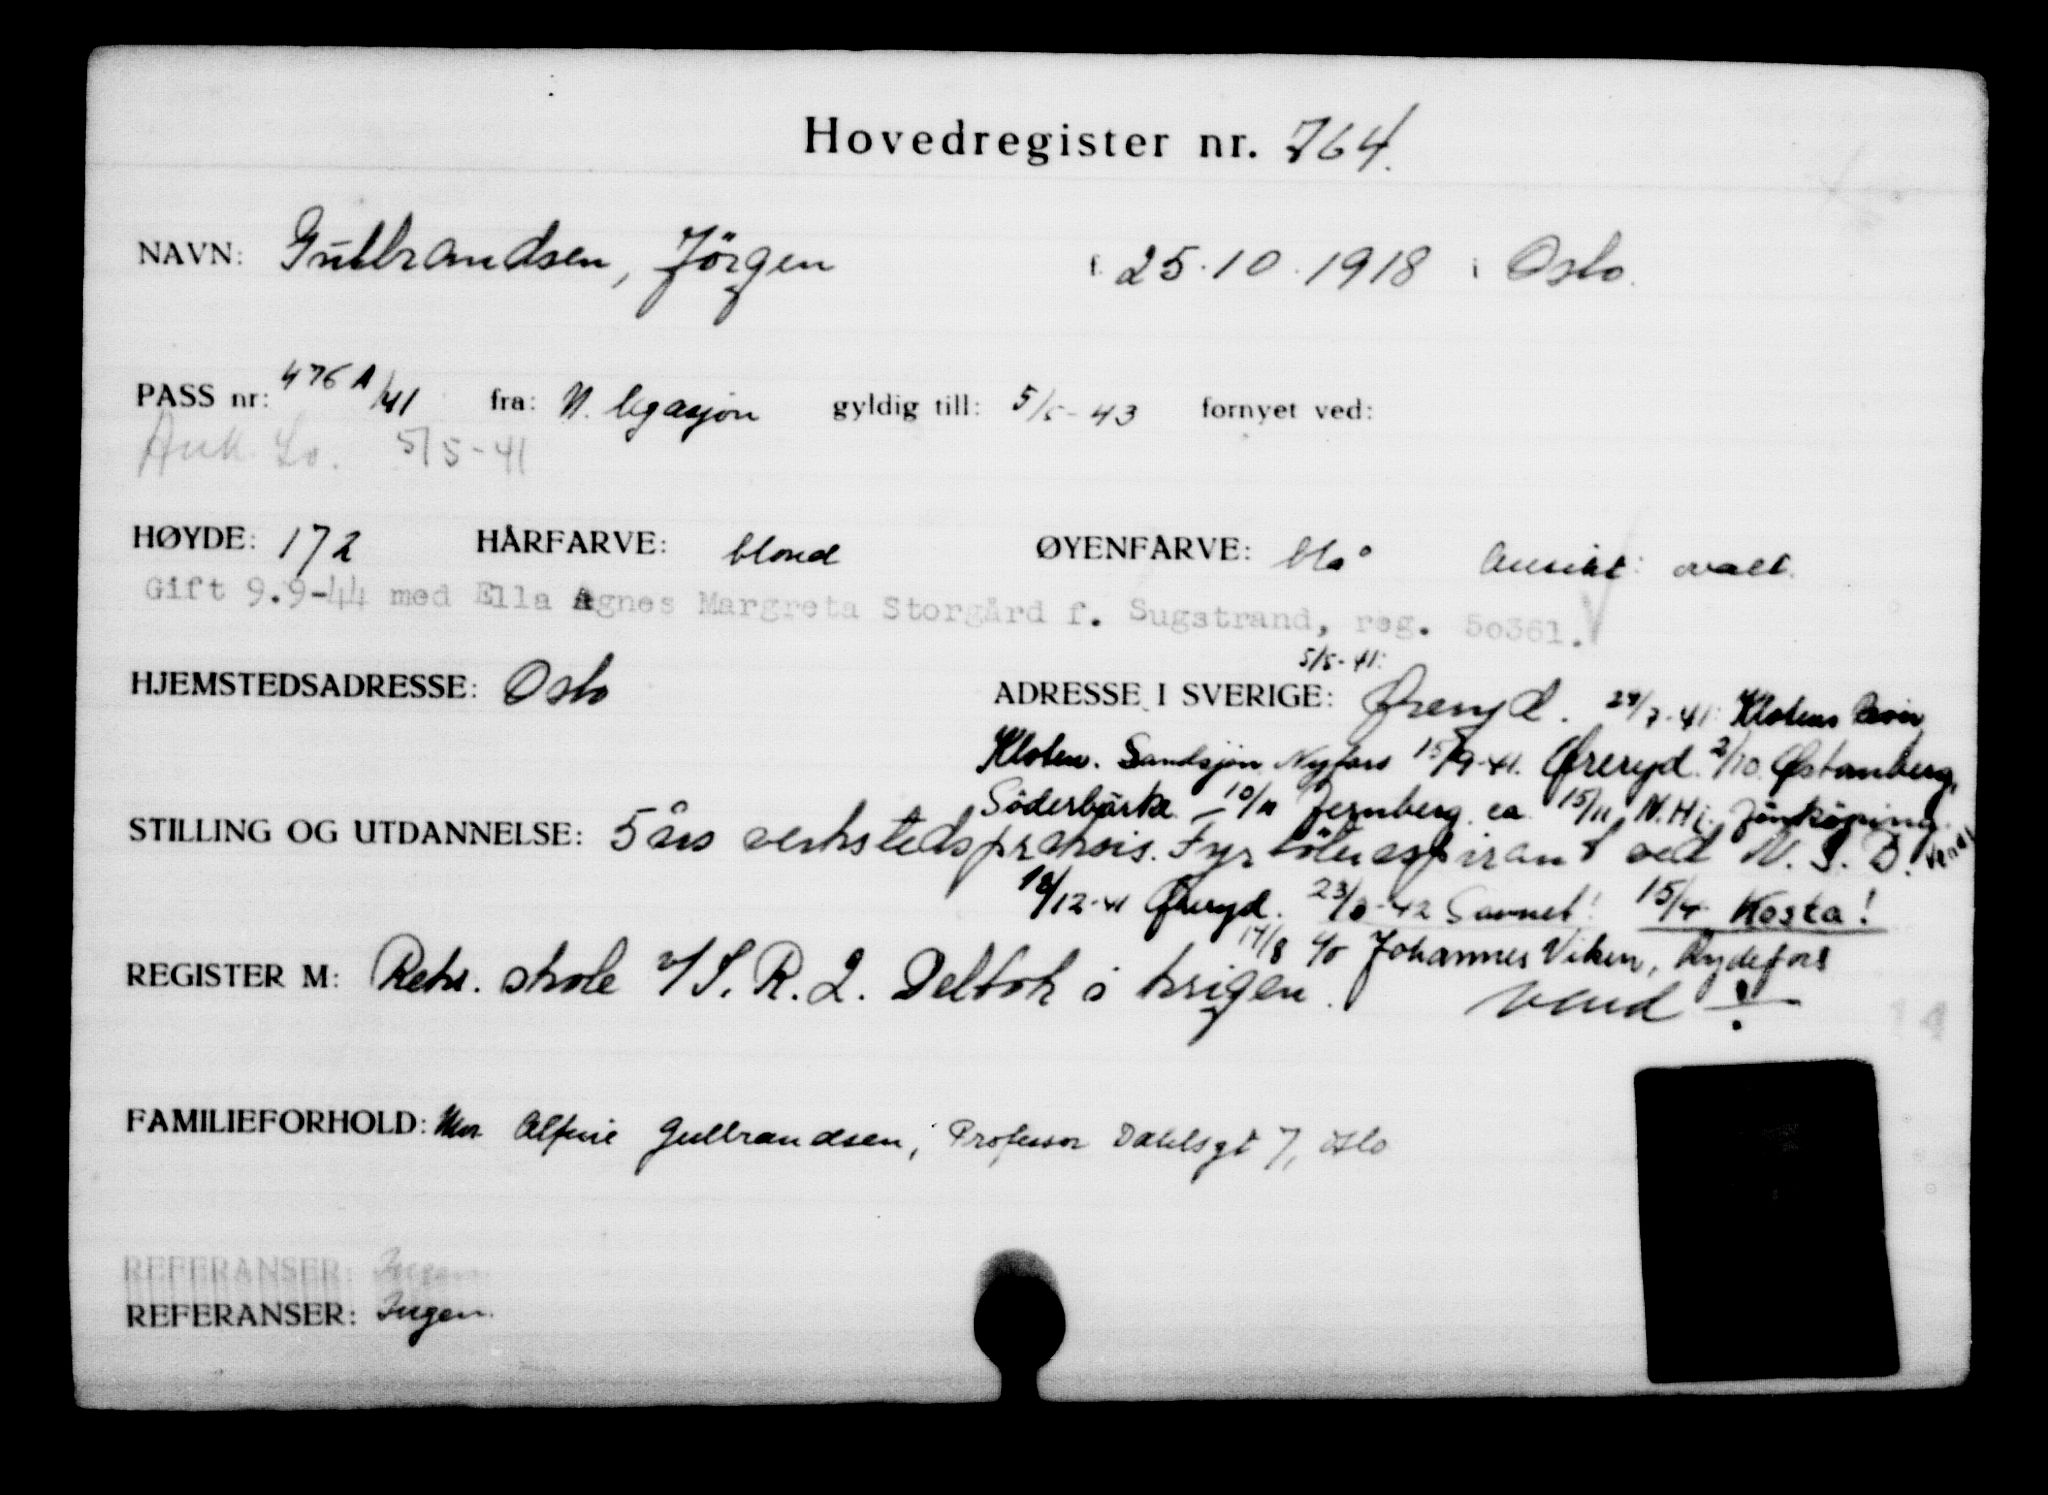 Hovedregister nr. 764.
NAVN: Gulbrandsen, Jörgen f. 25.10.1918 i Oslo.
PASS nr: 476A/41 fra: N. legasjon gyldig till: 5/5-43 fornyet ved:
Ank. 5/5-41
HØYDE: 172 HÅRFARVE: blond ØYENFARVE: blå Ansikt: ovalt.
Gift 9.9-44 med Ella Agnes Margreta Storgård f. Sugstrand, reg. 50361.
5/5-41:
HJEMSTEDSADRESSE: Oslo ADRESSE I SVERIGE: Øreryd. 24/7-41: Klotens Revir,
Kloten. Sandsjön Nyfors 15/9-41. Øreryd. 2/10. Østanberg,
Söderbärke – 10/11 Jernberg. ca 15/11 N.H. i Jönköping.
STILLING OG UTDANNELSE: 5 års verkstedspraksis. Fyrbøteraspirant ved N. S. B. Vend!
18/12-41 Øreryd. 23/3-42 Savnet! 15/4 Kosta!
17/8 c/o Johannes Viken, Rydefors
REGISTER M: Rekr. skole v/ I. R. 2. Deltok i krigen. Vend!
FAMILIEFORHOLD: Mor Alfine Gulbrandsen, Professor Dahlsgt 7, Oslo
REFERANSER: Ingen
REFERANSER: Ingen.